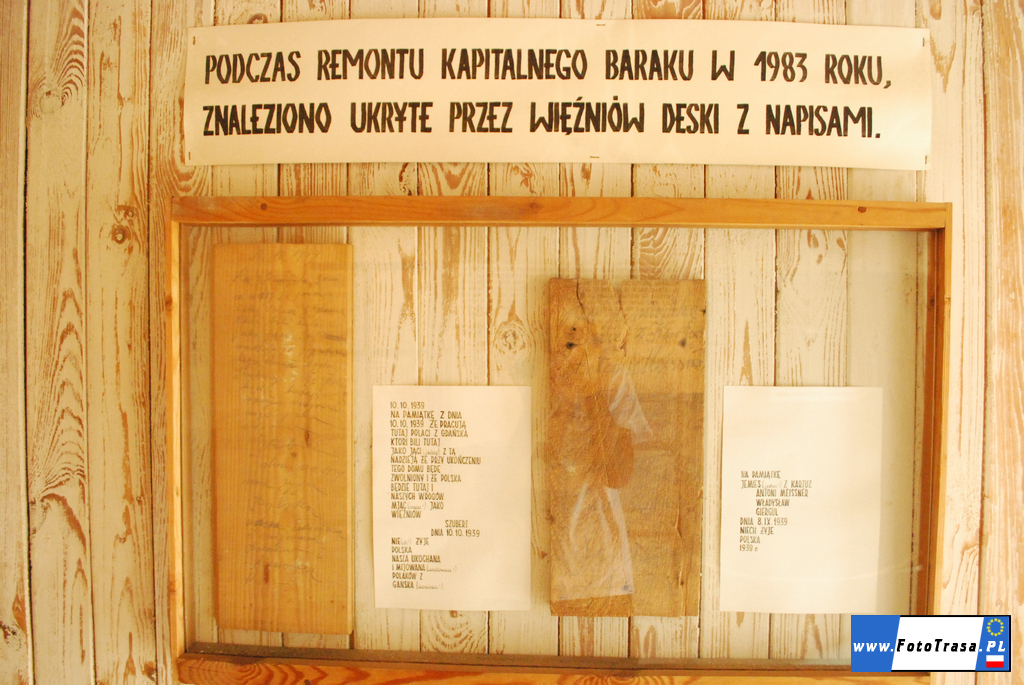 PODCZAS REMONTU KAPITALNEGO BARAKU W 1983 ROKU,
ZNALEZIONO UKRYTE PRZEZ WIĘŹNIÓW DESKI Z NAPISAMI.
10.10.1939
NA PAMIĄTKĘ Z DNIA
10.10.1939 ŻE PRACUJĄ
TUTAJ POLACI Z GDAŃSKA
KTORI BILI TUTAJ
JAKO JĄCI Z TĄ
NADZIEJĄ ŻE PRZY UKOŃCZENIU
TEGO DOMU BĘDĘ
ZWOLNIONY I ŻE POLSKA
BĘDZIE TUTAJ I
NASZYCH WROGÓW
MJAĆ JAKO
WIĘŹNIÓW
SZUBERT
DNIA 10.10.1939
NIE ŻYJE
POLSKA
NASZA UKOCHANA
I MIŁOWANA
POLAKÓW Z
GAŃSKA
NA PAMIĄTKĘ
JEMIEŚ Z KARTUZ
ANTONI MEISSNER
WŁADYSŁAW
GIERGUL
DNIA 8.IX.1939
NIECH ŻYJE
POLSKA
1939 r.
www.FotoTrasa.PL